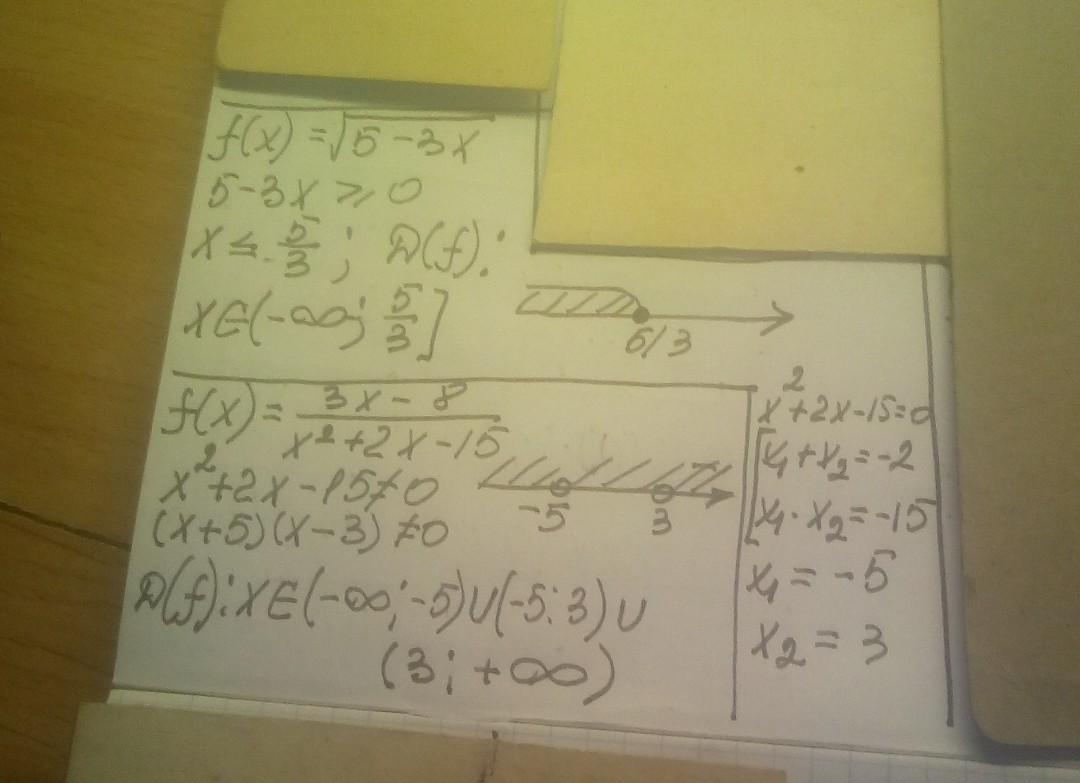 f(x) = √5-3x
5-3x ⩾ 0
x ≤ 5/3 ; D(f):
x∈(-∞; 5/3]
5/3
f(x) = 3x-8 / x²+2x-15
x²+2x-15≠0
-5 3
(x+5)(x-3)≠0
D(f): x∈(-∞;-5)∪(-5;3)∪
(3;+∞)
x²+2x-15=0
[x₁+x₂=-2
x₁·x₂=-15
x₁ = -5
x₂ = 3